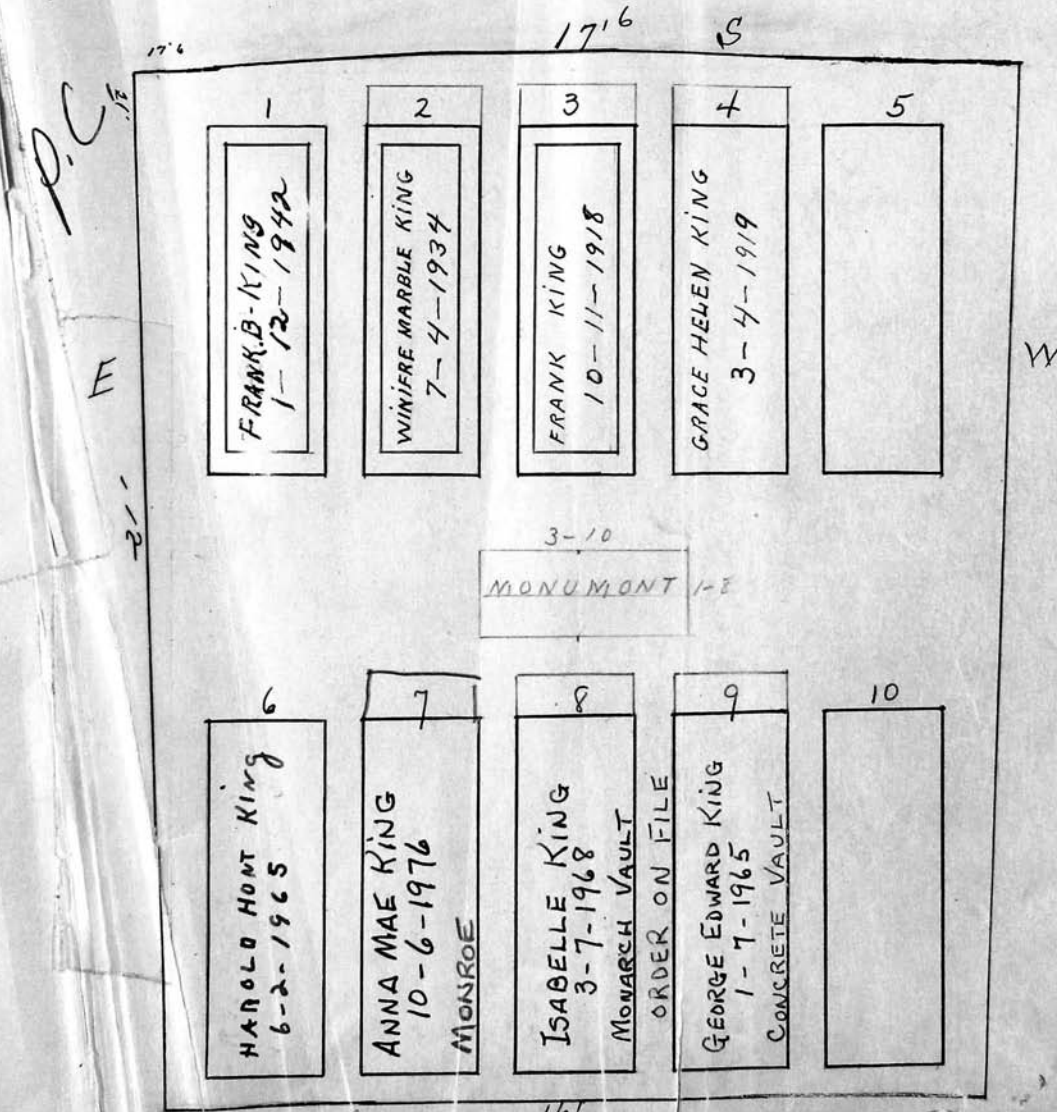 17'6 S
17'6
P.C
1 2 3 4 5
FRANK.B-KING
1-12-1942
WINIFRE MARBLE KING
7-4-1934
FRANK KING
10-11-1918
GRACE HELEN KING
3-4-1919
E
W
3-10
MONUMONT
6 7 8 9 10
HAROLD HONT KING
6-2-1965
ANNA MAE KING
10-6-1976
MONROE
ISABELLE KING
3-7-1968
MONARCH VAULT
ORDER ON FILE
GEORGE EDWARD KING
1-7-1965
CONCRETE VAULT